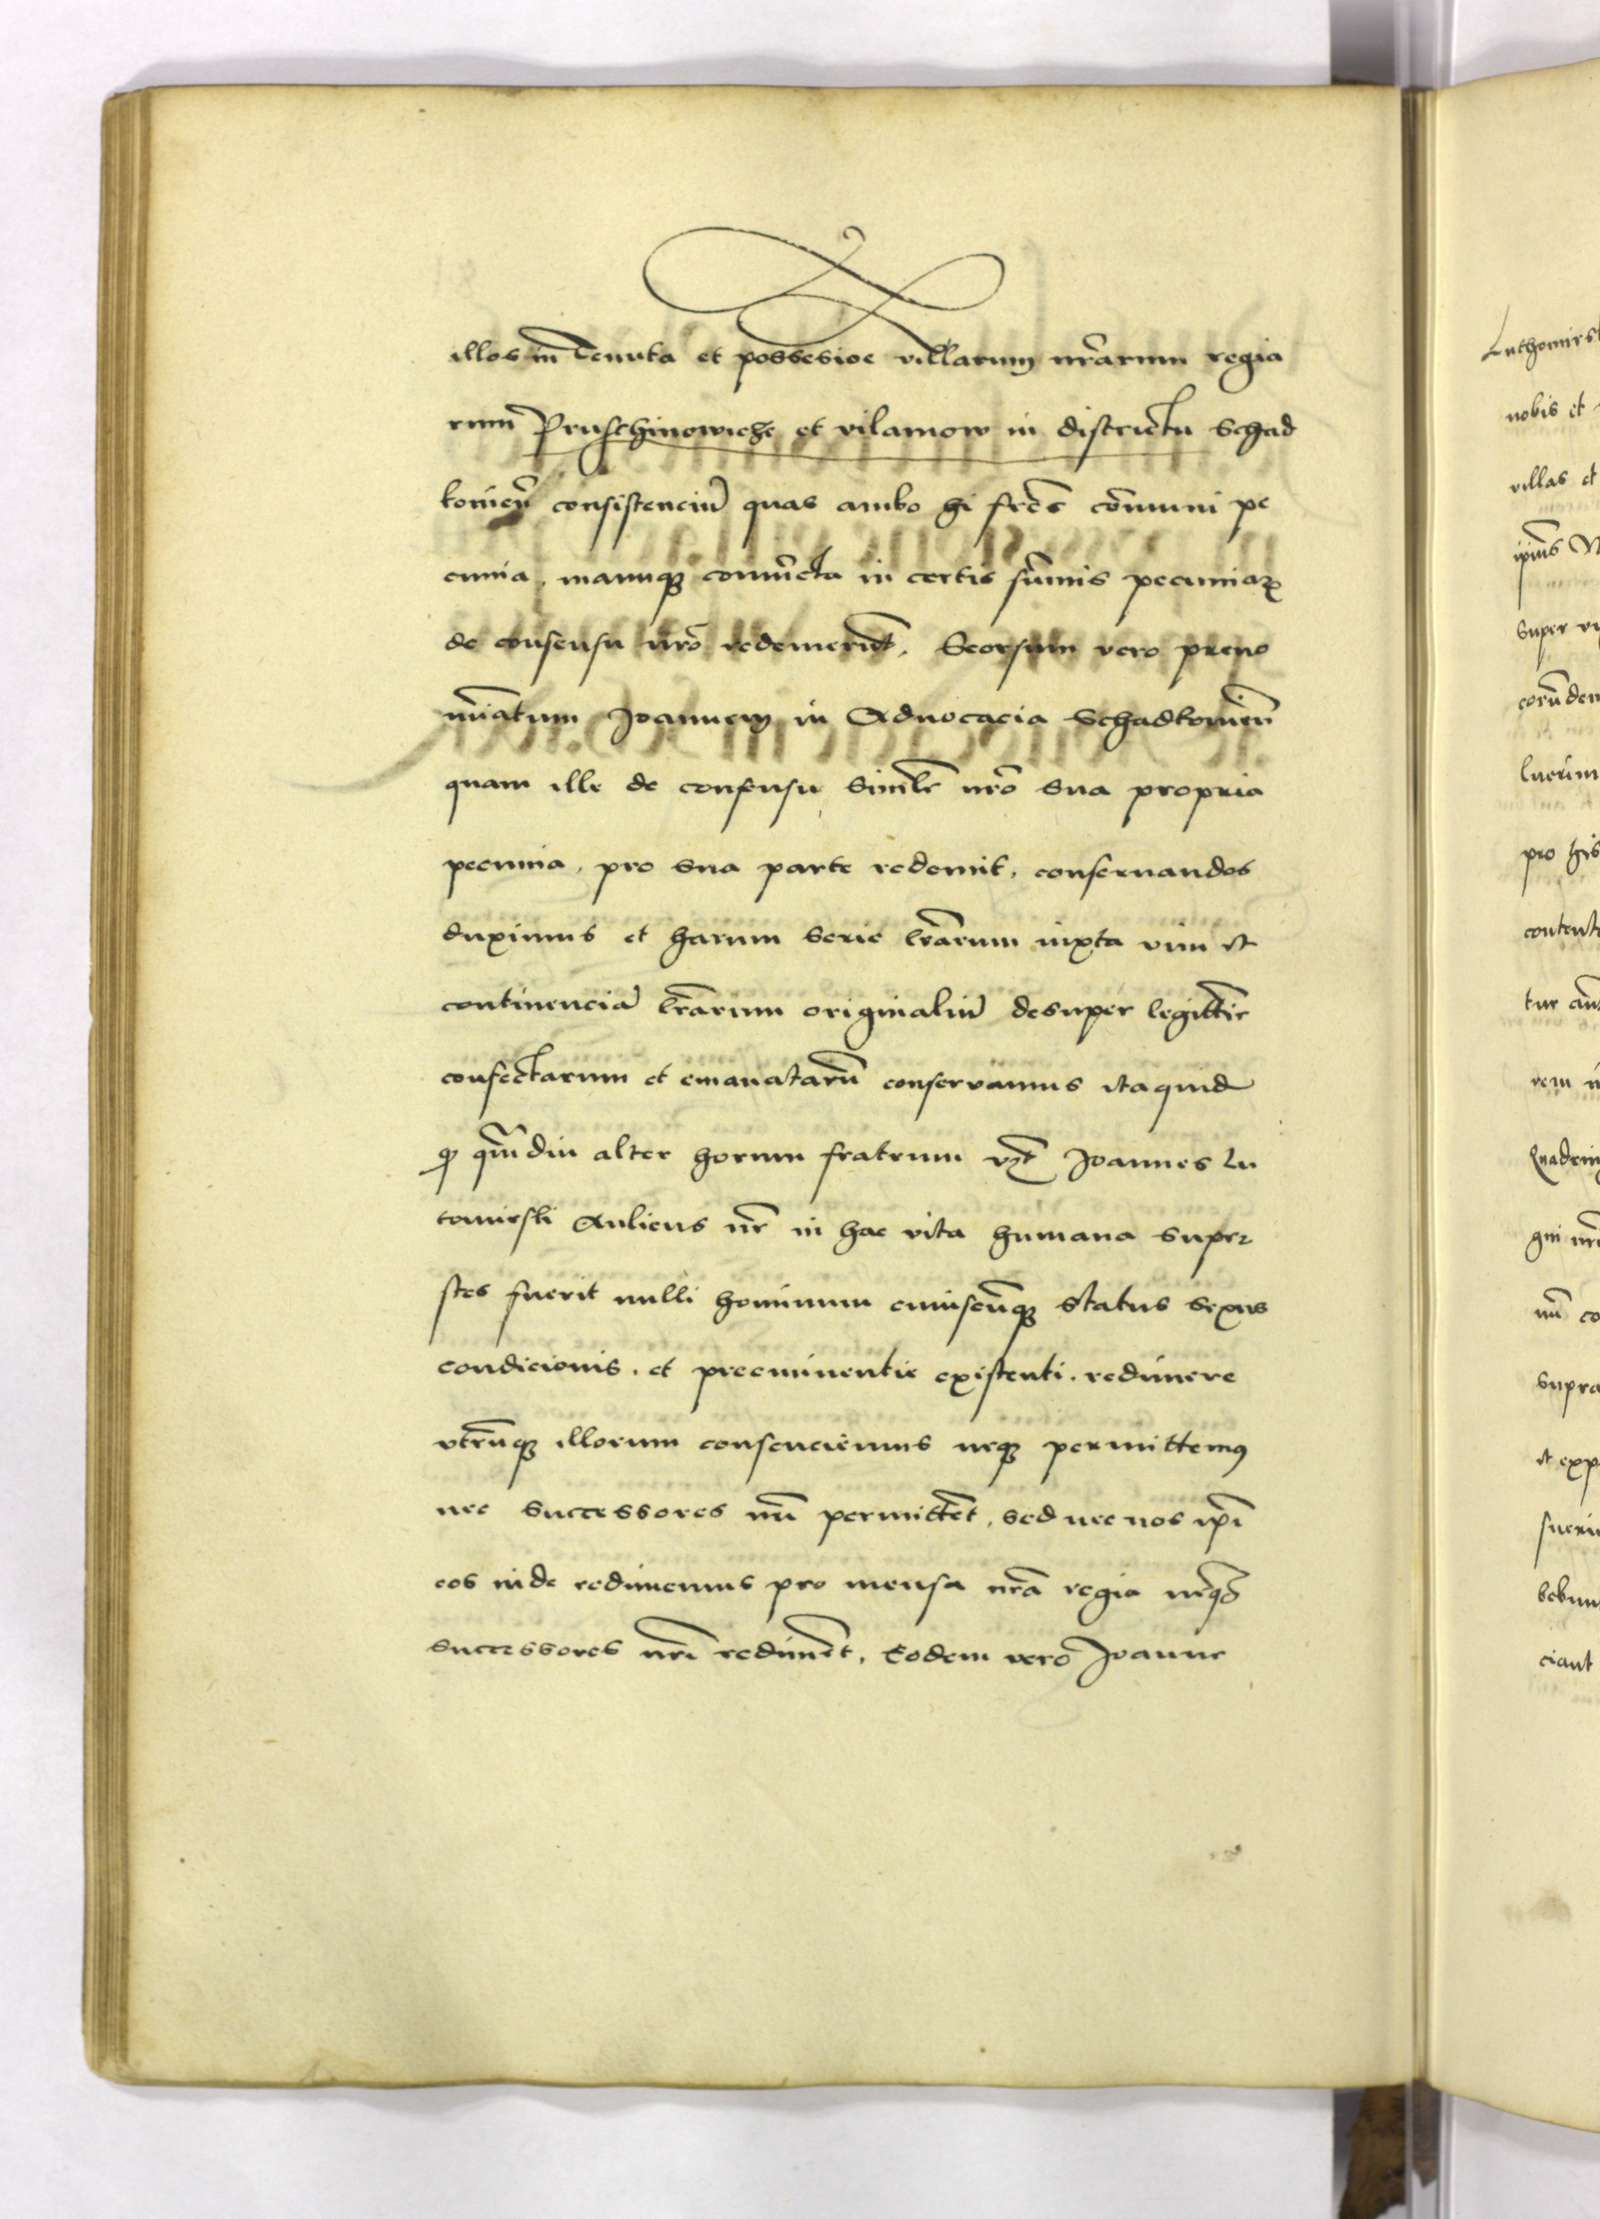 illos in Tenuta et possesioe villarum nr̃arum regia
rum Pruschinowicze et vilamow in districtu Schad
kovieñ consistenciũ quas ambo hi fr̃es cõmuni pe
cunia, manuqꝫ coniũcta in certis sũmis pecuniaꝝ
de consensu nr̃o redemerũt. Seorsum vero preno
mĩatum Joannem in Aduocacia Schadkovieñ
quam ille de consensu simil̃r nr̃o sua propria
pecunia, pro sua parte redemit, conseruandos
duximus et harum serie l̃rarum iuxta vim et
continenciã l̃rarum originaliũ desuper legittĩe
confectarum et emanatarũ conservamus itaquid
qꝫ q̃mdiu alter horum fratrum vꝫt Joannes Lu
tomirski Aulicus nr̃ in hac vita humana super
stes fuerit nulli hominum cuiuscũqꝫ status sexus
condicionis, et preeminentie existenti, redimere
vtrũqꝫ illorum consenciemus neqꝫ permittemꝰ
nec successores nr̃i permittẽt, sed nec nos ip̃i
eos inde redimemus pro mensa nr̃a regia
successores nr̃i rediment, Eodem vero Joanne
Luthomirs
nobis et
villas et
ip̃ius
super
corũdem
pro his
content
tur
supra
et exp
ciant